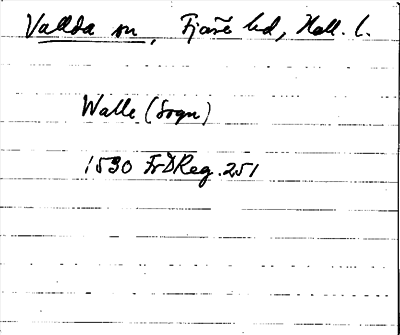 Vallda sn, Fjäre hd, Hall. l.
Walle (Sogn)
1530 FrDReg. 251